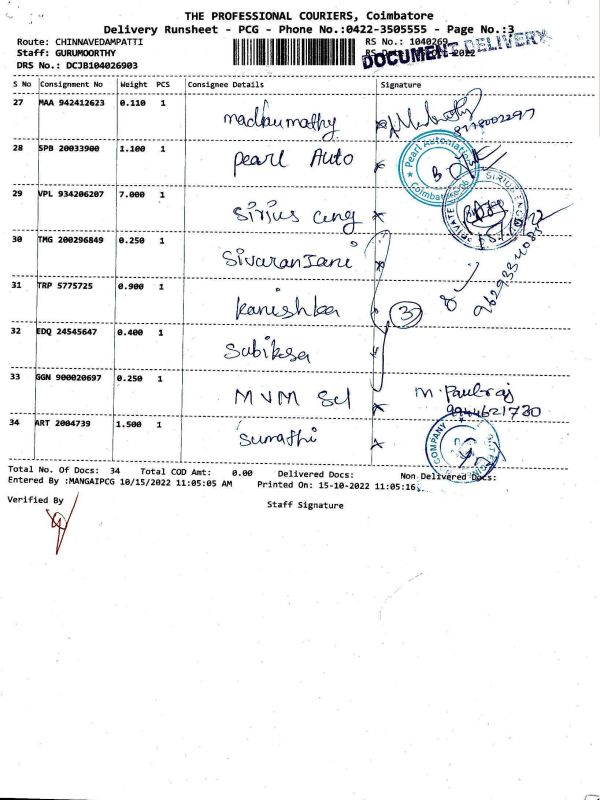 THE PROFESSIONAL COURIERS, Coimbatore
Delivery Runsheet - PCG - Phone No.:0422-3505555 - Page No.:3
Route: CHINNAVEDAMPATTI RS No.: 1040269
Staff: GURUMOORTHY
DRS No.: DCJB104026903
DOCUMENT DELIVERY
S No Consignment No Weight PCS Consignee Details Signature
27 MAA 942412623 0.110 1 madhumathy
28 SPB 20033900 1.100 1 pearl Auto
Pearl Automation
Coimbatore-06
29 VPL 934206207 7.000 1 Sirius eng
30 TMG 200296849 0.250 1 Sivaranjani
31 TRP 5775725 0.900 1 Kanishka 3 8
32 EDQ 24545647 0.400 1 Subiksa
33 GGN 900020697 0.250 1 MVM Scl M. Paulraj
9944621730
34 ART 2004739 1.500 1 Sumathi
COMPANY
Total No. Of Docs: 34 Total COD Amt: 0.00 Delivered Docs: Non Delivered Docs:
Entered By :MANGAIPCG 10/15/2022 11:05:05 AM Printed On: 15-10-2022 11:05:16
Verified By Staff Signature